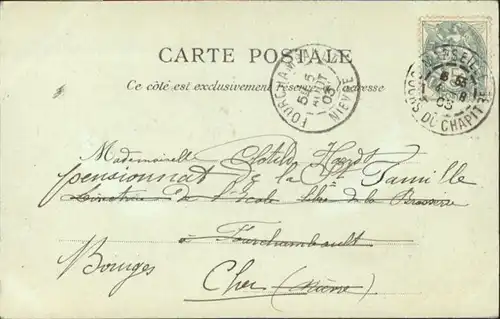 CARTE POSTALE
Ce côté est exclusivement réservé à l'adresse
FOURCHAMBAULT
5E 5
AOUT
03
NIEVRE
COURS DU CHAPITRE
8
03
Mademoiselle Clotilde
pensionnat de la Ste Famille
Directrice de l'école libre de la
à Fourchambault
Bourges Cher (Nièvre)